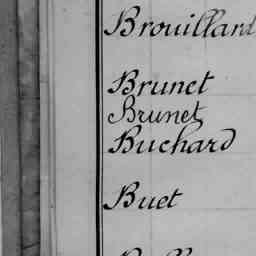 Brouillard
Brunet
Brunet
Buchard
Buet